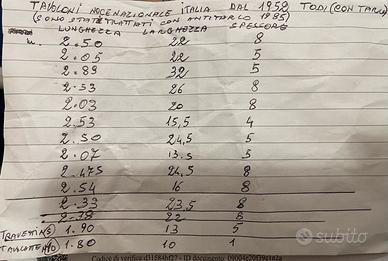 TAVOLONI NOCE NAZIONALE ITALIA DAL 1952 TODI (CON TARLI)
(SONO STATI TRATTATI CON ANTITARLO 1985)
LUNGHEZZA LARGHEZZA SPESSORE
2.50 22 8
2.05 22 5
2.89 32 5
2.53 26 8
2.03 20 8
2.53 15,5 4
2.50 24,5 5
2.07 13.5 5
2.475 24,5 8
2.54 16 8
2.33 23,5 8
2.38 22 5
1.90 13 5
1.80 10 1
Codice di verifica
ID documento:
subito